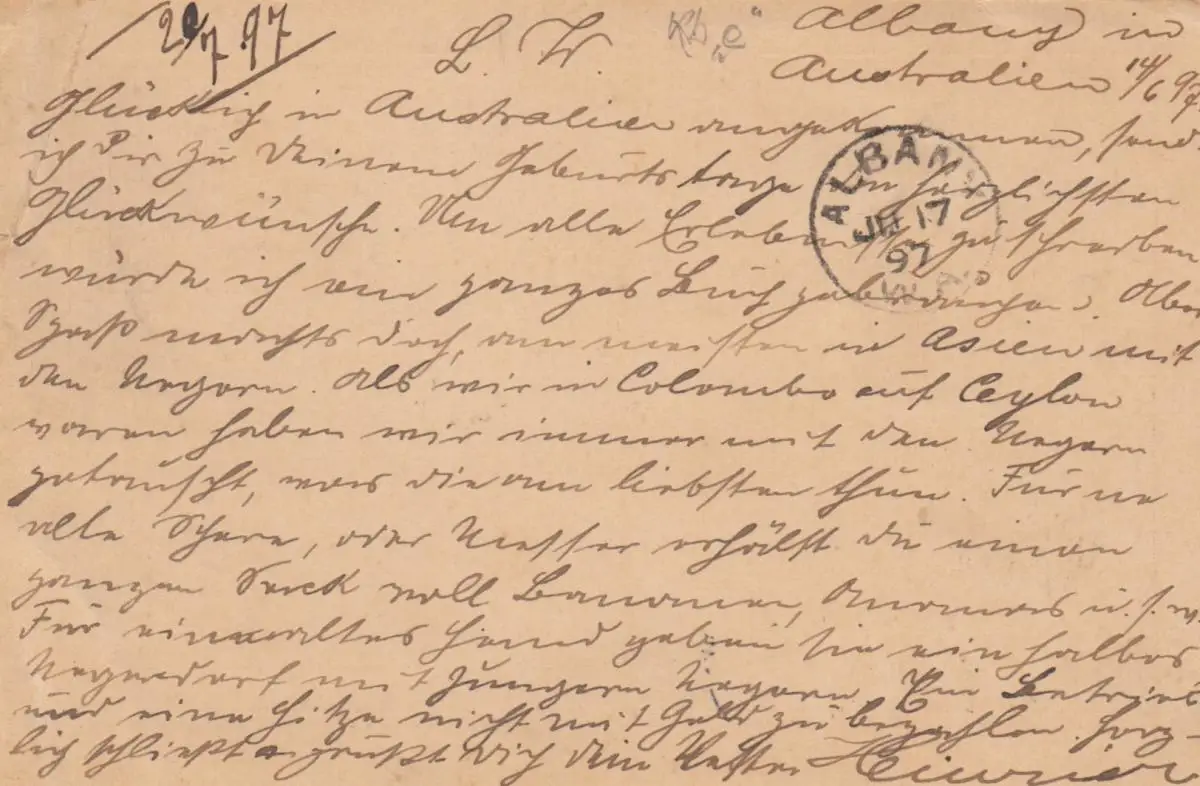 20/7 97
L. W.
Albany in
Australien 14/6 97
Glücklich in Australien angekommen, send
ich Dir zu Deinem Geburtstage die herzlichsten
Glückwünsche. Um alle Erlebnisse zu schreiben
würde ich ein ganzes Buch gebrauchen. Aber
Spaß machts doch, am meisten in Asien mit
den Negern. Als wir in Colombo auf Ceylon
waren haben wir immer mit den Negern
getauscht, was die am liebsten thun. Für ne
alte Schere, oder Messer erhälst du einen
ganzen Sack voll Bananen, Ananas u. s. w.
Für ein altes Hemd geben sie ein halbes
Negerdorf mit jungern Negern. Ein Betrieb
und eine Hitze nicht mit Geld zu bezahlen. Herz-
lich schließt grüßt Dich dein Vetter Heinrich
ALBANY
JU 17
97
W.A.